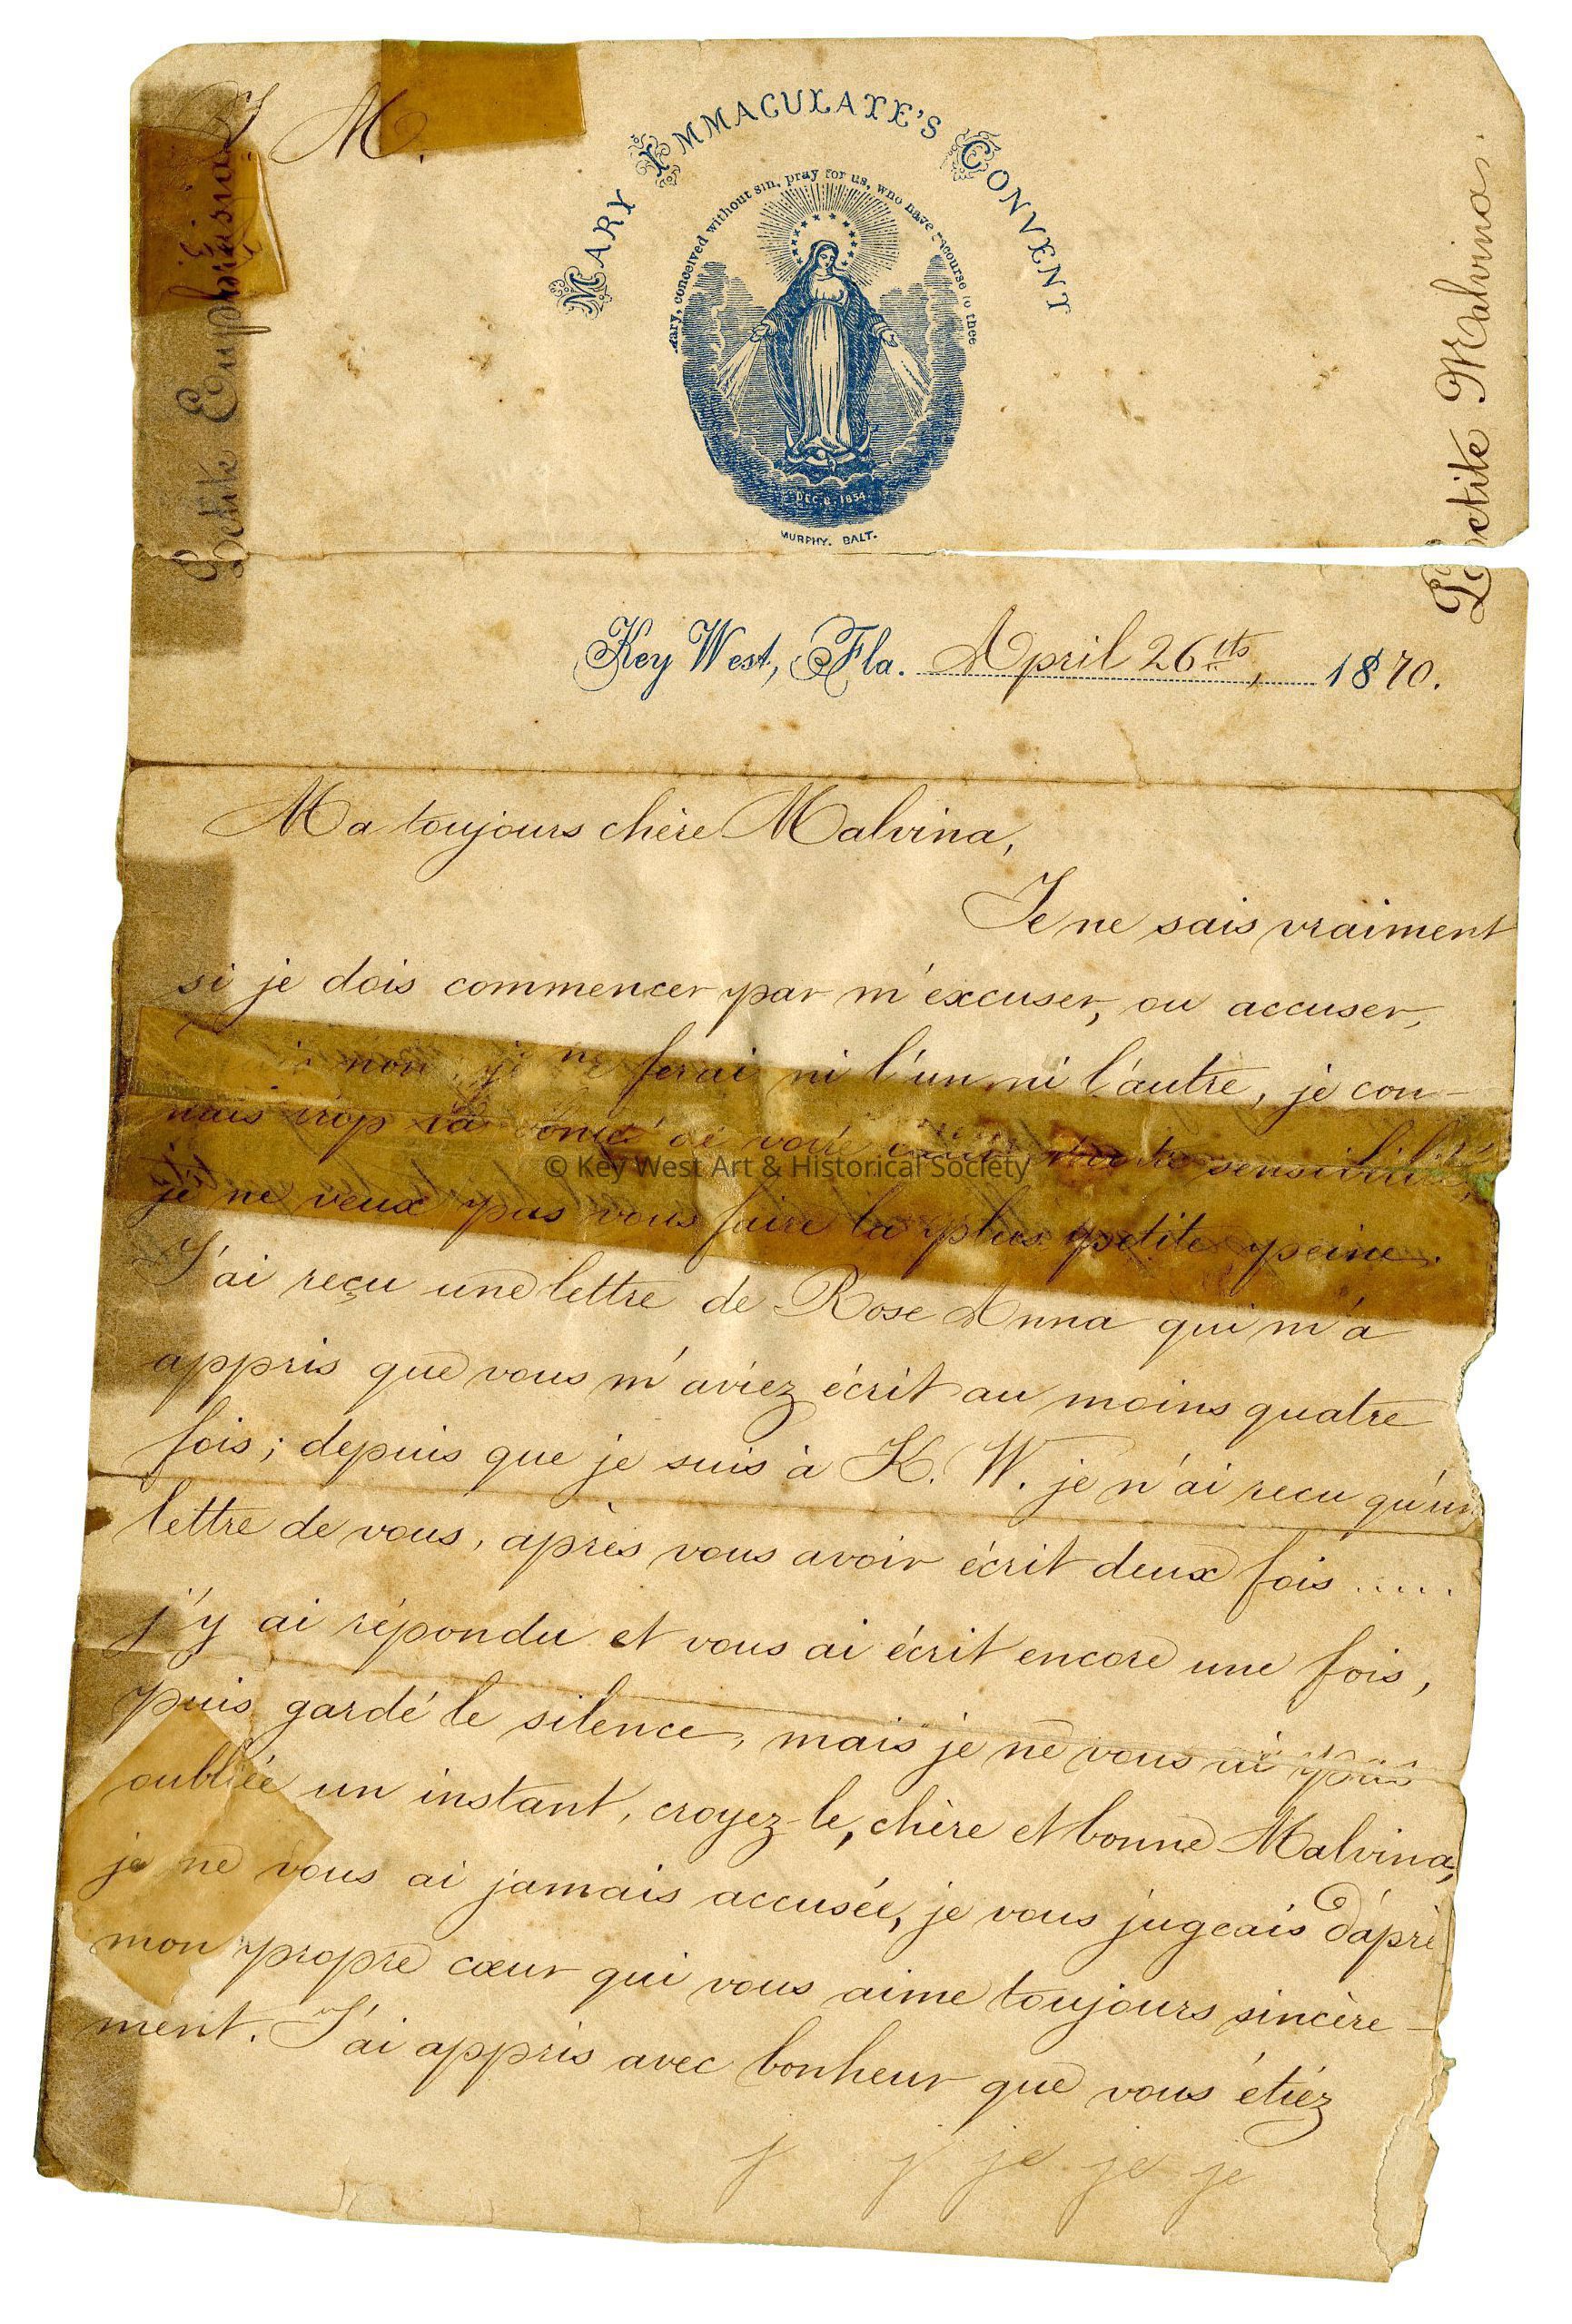 J. M.
MARY IMMACULATE'S CONVENT
Mary, conceived without sin, pray for us, who have recourse to thee
DEC. 8. 1854
MURPHY. BALT.
Petite Euphrasina
Petite Malvina.
Key West, Fla. April 26ths, 1870.
Ma toujours chère Malvina,
Je ne sais vraiment
si je dois commencer par m'excuser, ou accuser,
non, je ne ferai ni l'un ni l'autre, je con-
nais trop la bonté de votre votre sensibilité,
je ne veux pas vous faire la plus petite peine.
J'ai reçu une lettre de Rose Anna qui m'a
appris que vous m'aviez écrit au moins quatre
fois; depuis que je suis à K. W. je n'ai recu qu'un
lettre de vous, après vous avoir écrit deux fois .....
j'y ai répondu et vous ai écrit encore une fois,
puis gardé le silence, mais je ne vous ai pas
oubliée un instant, croyez-le, chère et bonne Malvina,
je ne vous ai jamais accusée, je vous jugeais d'aprè
mon propre cœur qui vous aime toujours sincère-
ment. J'ai appris avec bonheur que vous étiez
j j je je je
© Key West Art & Historical Society